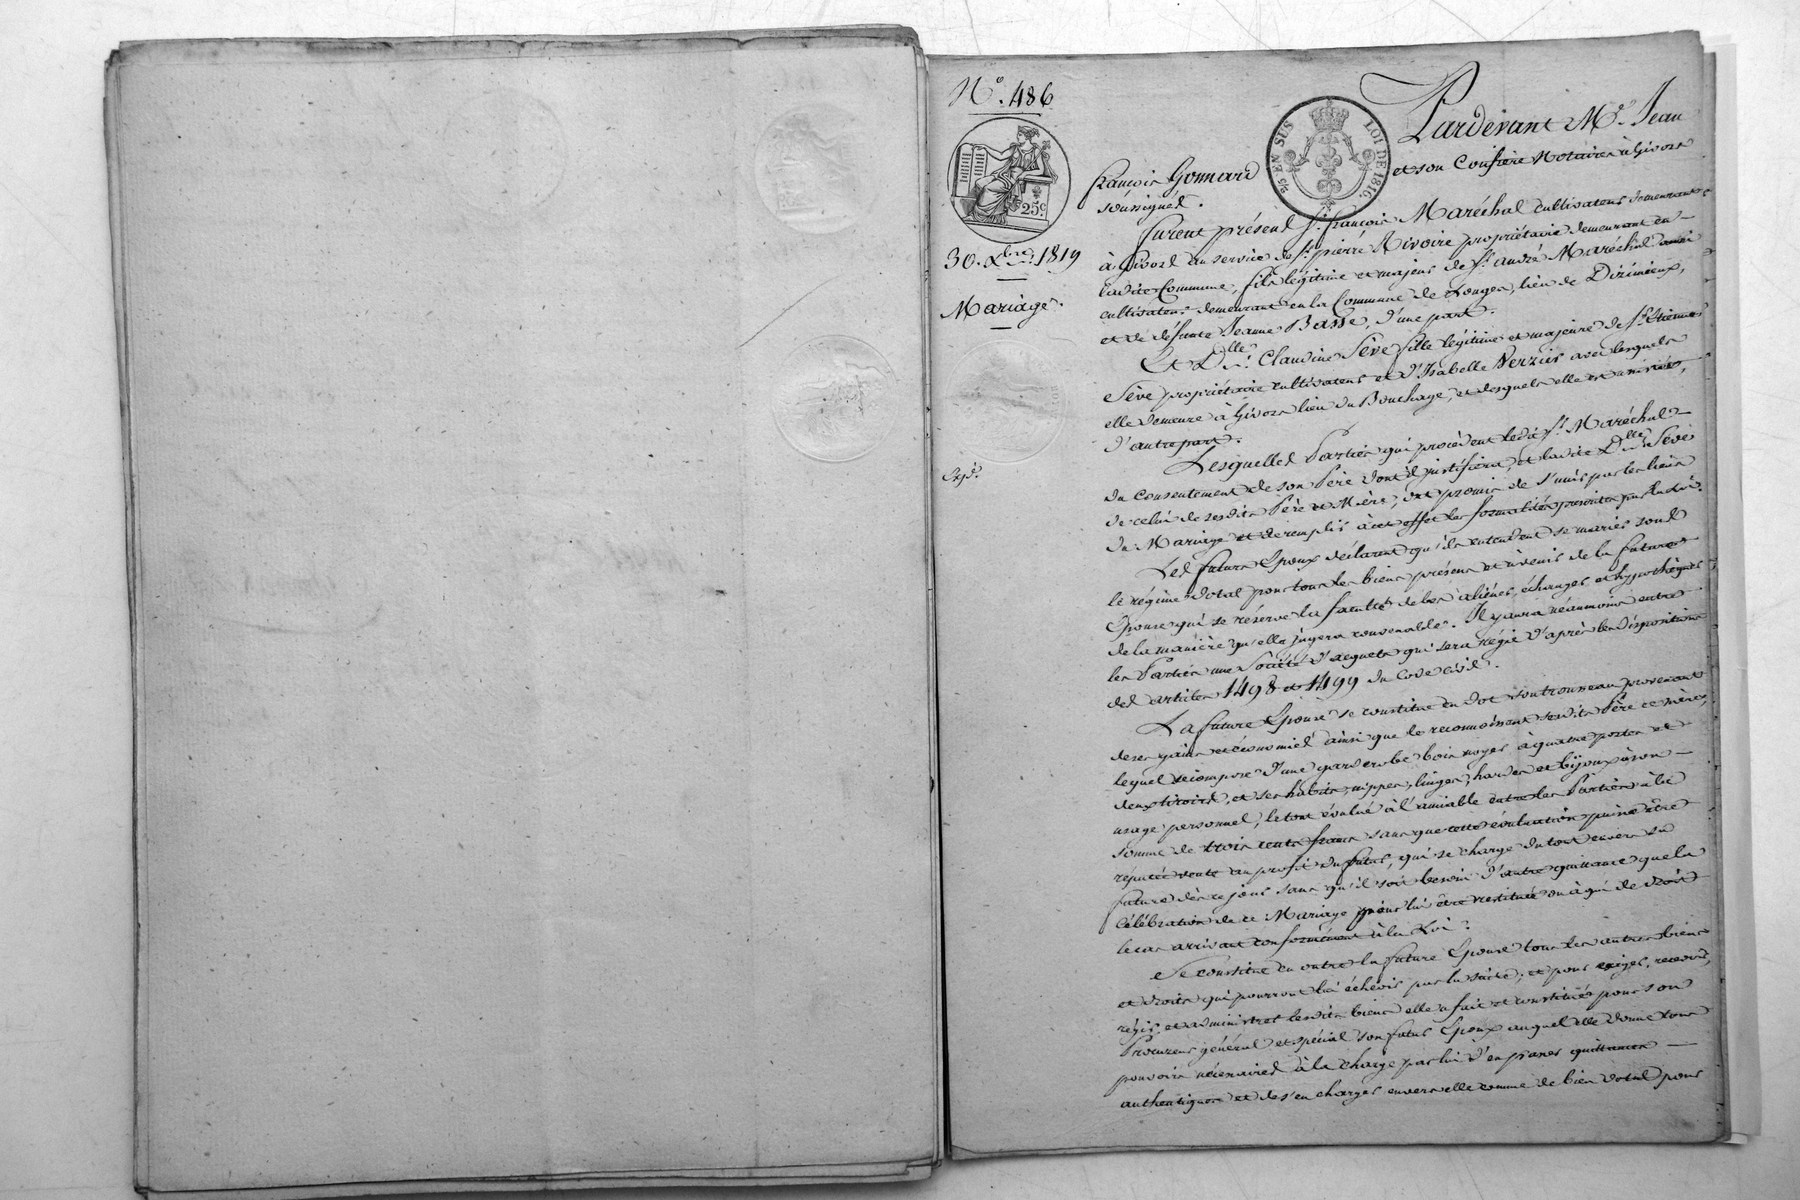 N° 486
25c.
30. Xbre. 1819
Mariage.
Expé.
2/5 EN SUS LOI DE 1816.
Pardevant Me. Jean
françois Gonnard et son Confrère Notaires à Givors
soussignés.
furent présens Sr. françois Maréchal cultivateur demeurant
à Givors au service de Sr. pierre Rivoire propriétaire demeurant en
ladite Commune, fils légitime et majeur de Sr. andré Maréchal aussi
cultivateur demeurant en la Commune de Longes, lieu de Dizimieux,
et de défunte Jeanne Basse, d'une part.
Et Dlle. Claudine Sève fille légitime et majeure de Sr. Etienne
Sève propriétaire cultivateur et d'Isabelle Verzier avec lesquels
elle demeure à Givors lieu du Bouchage, et desquels elle est assistée,
d'autre part.
Lesquelles Parties qui procèdent ledit Sr. Maréchal
du consentement de son Père dont il justifiera, et ladite Dlle. Sève
de celui de sesdits Père et Mère, ont promis de s'unir par les liens
du Mariage et de remplir à cet effet les formalités prescrites par la Loi.
Les futurs Epoux déclarent qu'ils entendent se marier sous
le régime dotal pour tous les biens présens et à venir de la future
Epouse qui se réserve la faculté de les aliéner, échanger et hypothèquer
de la manière qu'elle jugera convenable. Il y aura néanmoins entre
les Parties une Société d'acquets qui sera régie d'après les dispositions
des articles 1498 et 1499 du Code civil.
La future Epouse se constitue en dot son trousseau provenant
de ses gains et économies ainsi que le reconnoissent sesdits Père et mère,
lequel se compose d'une garderobe bois noyer à quatre portes et
deux tiroirs, et ses habits, nippes, linges, hardes et bijoux à son
usage personnel, le tout évalué à l'amiable entre les Parties à la
somme de trois cents francs sans que cette évaluation puisse être
reputée vente au profit du futur, qui se charge du tout envers la
future dès ce jour sans qu'il soit besoin d'autre quittance que la
célébration de ce Mariage pour lui être restitué ou à qui de droit
le cas arrivant conformément à la Loi.
Se constitue en outre la future Epouse tous les autres biens
et droits qui pourront lui échoir par la suite; et pour exiger, recevoir,
régir et administrer lesdits biens elle a fait et constitué pour son
Procureur général et spécial son futur Epoux auquel elle donne tous
pouvoirs nécessaires à la charge par lui d'en passer quittances
authentiques et de s'en charger envers elle comme de bien dotal pour